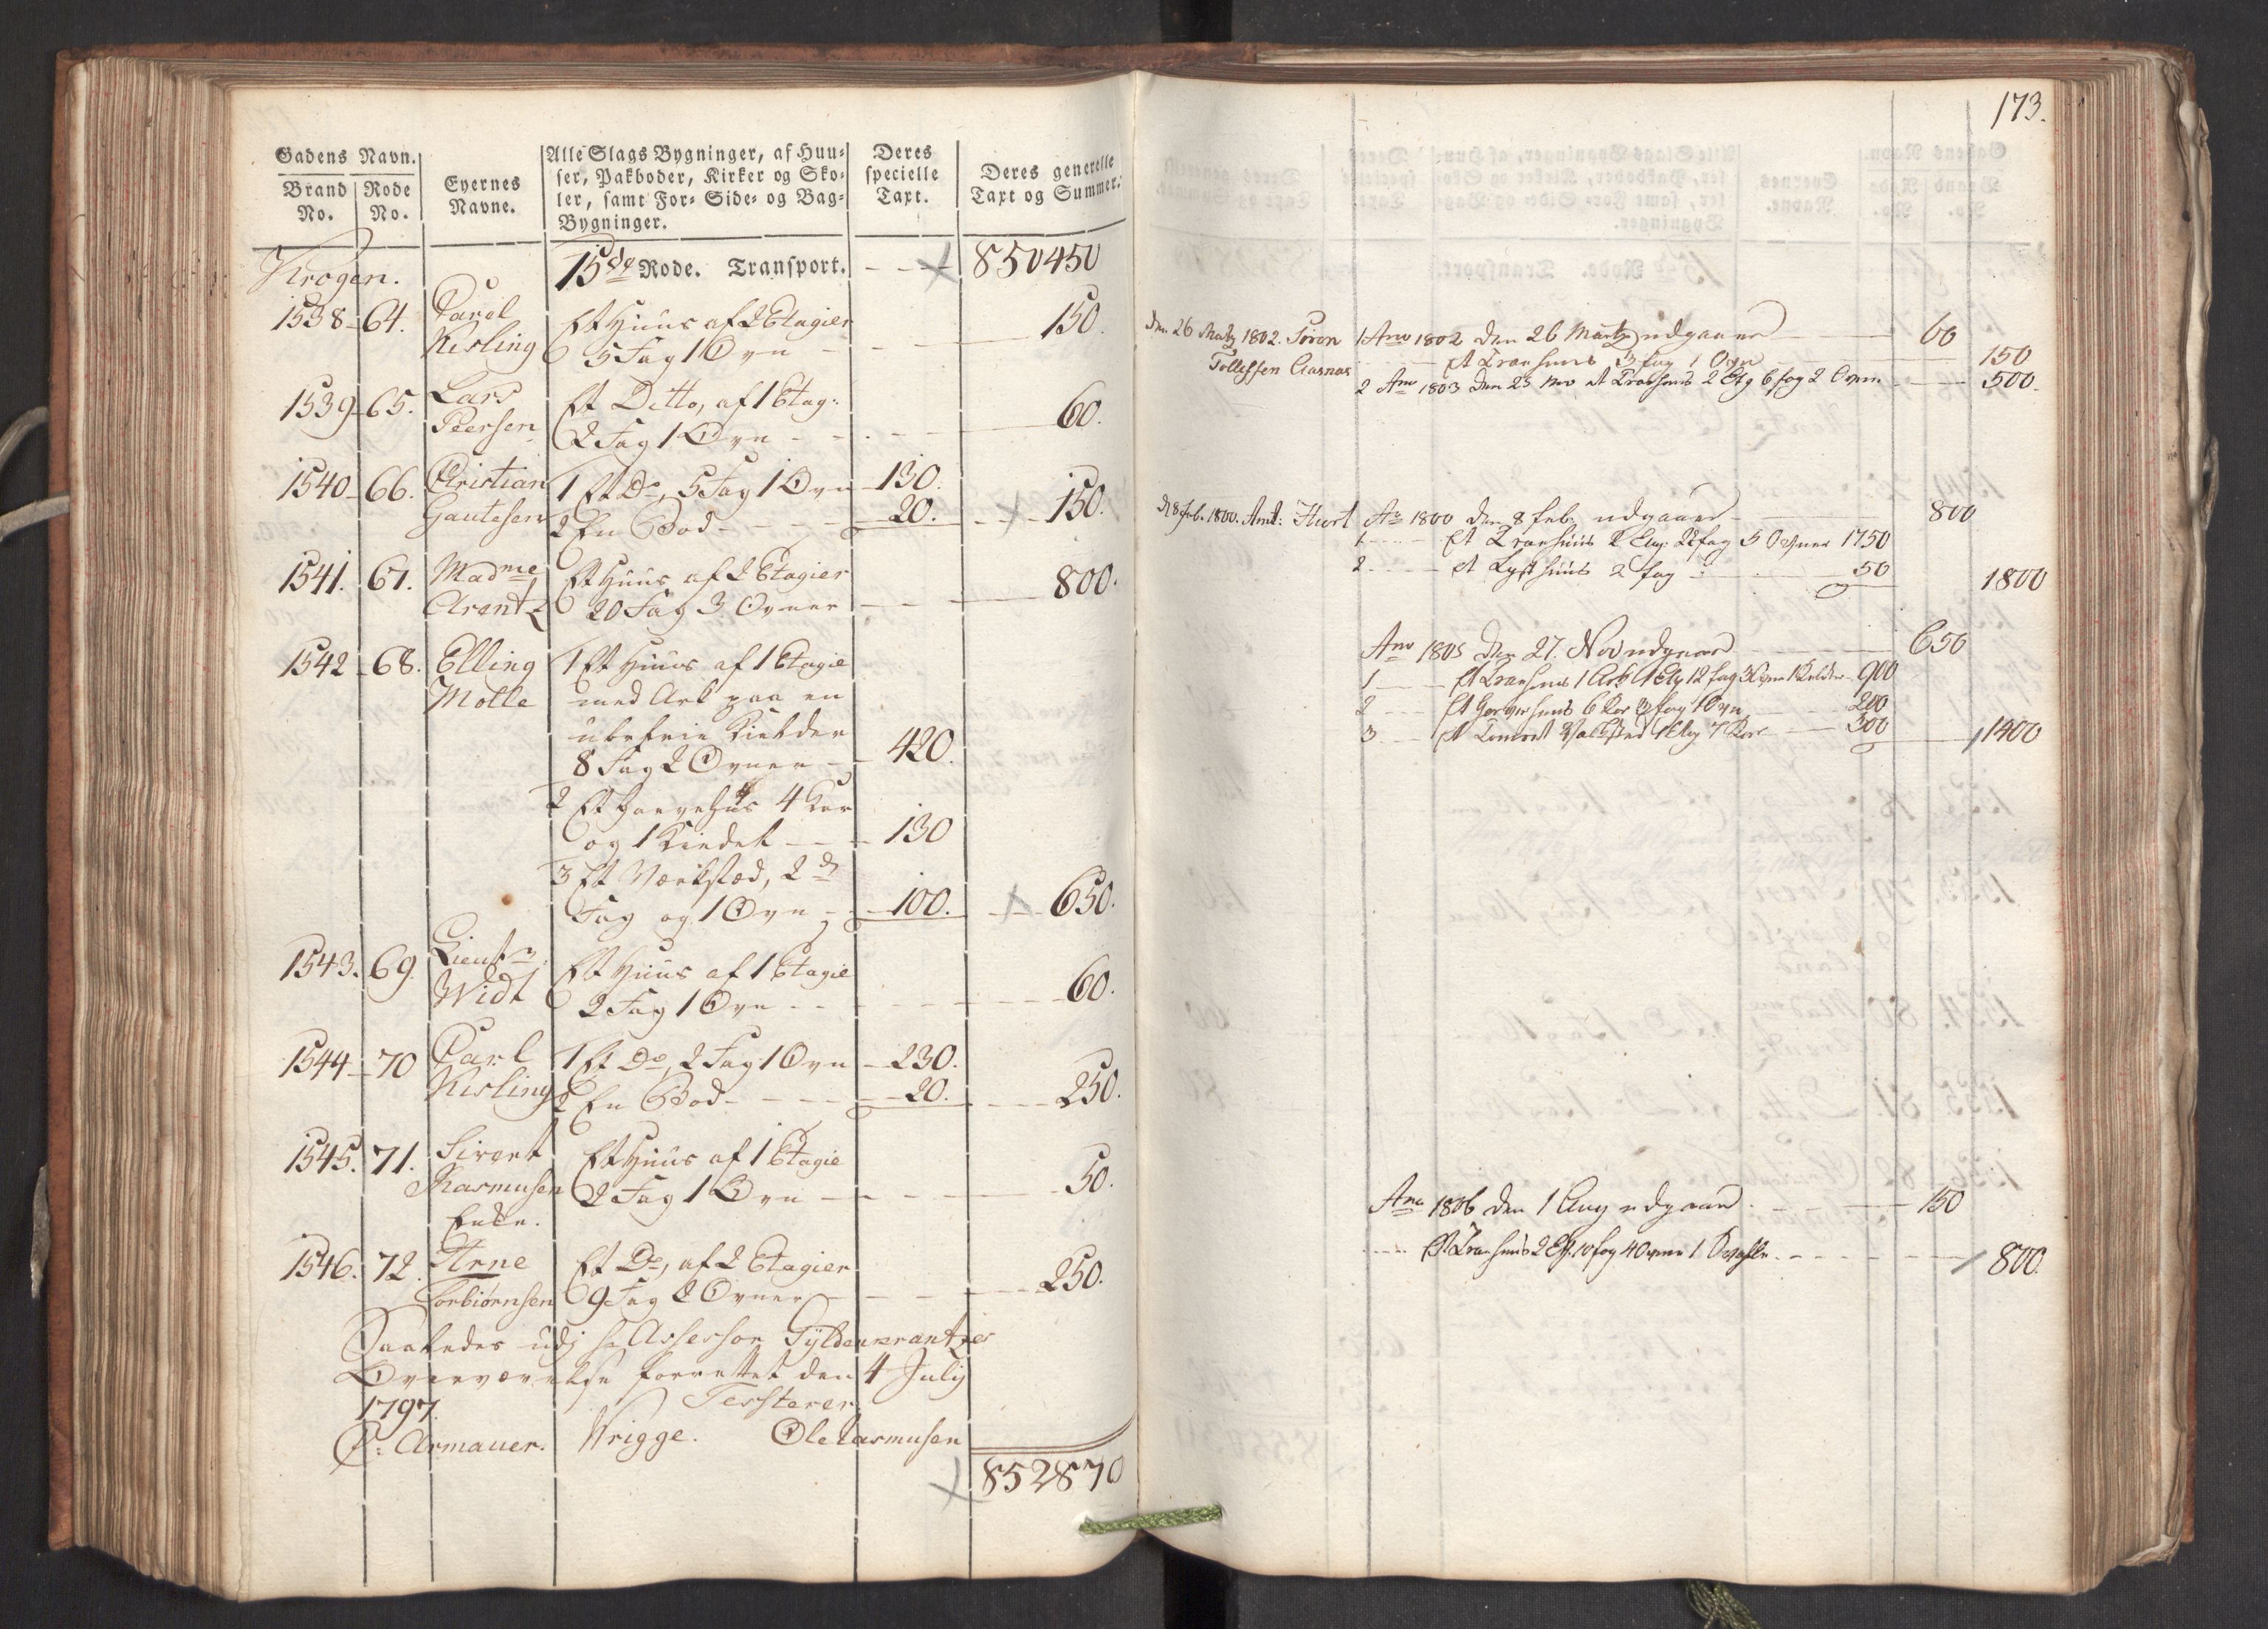 Gadens Navn.
Brand No.
Rode No.
Eyernes Navne.
Alle Slags Bygninger, af Huu-
ser, Pakboder, Kirker og Sko-
ler, samt For- Side- og Bag-
Bygninger.
Deres specielle Taxt.
Deres generelle Taxt og Summer.
Krogen. 15de Rode. Transport. 850450
1538 64. Carel Et Huus af 2 Etagier
Kisling 5 Fag 1 Ovn 150.
1539 65. Lars Et Ditto, af 1 Etag:
Peersen 2 Fag 1 Ovn 60.
1540 66. Christian 1 Et Do, 5 Fag 1 Ovn 130.
Gautesen 2 En Bod 20. 150.
1541. 67. Madme Et Huus af 2 Etagier
Arentz 20 Fag 3 Ovner 800.
1542 68. Elling 1 Et Huus af 1 Etagie
Molle med Ark paa en
ubefrie Kielder
8 Fag 2 Ovner 420.
2 Et Garvehus 4 Kar
og 1 Kiedel 130
3 Et Værksted, 2
Fag og 1 Ovn 100. 650.
1543. 69. Lieutn Et Huus af 1 Etagie
Widt 2 Fag 1 Ovn 60.
1544 70 Carl 1 Et Do, 2 Fag 1 Ovn 230.
Kisling 2 En Bod 20. 250.
1545. 71. Sivert Et Huus af 1 Etagie
Rasmusen 2 Fag 1 Ovn 50.
Enke.
1546. 72. Arne Et Do, af 2 Etagier
Torbiørnsen 9 Fag 2 Ovner 250.
Saaledes udj Hr Assessor Gyldenkrantzes
Overværelse forrettet den 4 July
1797. Testerer
C: Armauer. Wrigge. Ole Rasmusen
852870
173.
den 26 Martz 1802. Søren 1 Ano 1802 den 26 Martz udgaaer 60
Tollefsen Aasnæs Et Træehuus 3 fag 1 Ovn 150
2 Ano 1803 den 23 Nov et Træehuus 2 Etg 6 fag 2 Ovne 500.
d 8 Feb. 1800. Amt: Hiort Ao 1800 den 8 febr udgaaer 800
1 Et Træehuus 2 Etag. 22 fag 5 Ovner 1750
2 et Lysthuus 2 fag 50 1800
Ano 1805 den 27. Nov udgaaer 650
1 Et Træehuus 1 Ark 1 Etg 12 fag 3 Ovne 1 Kelder 900
2 Et Garverhuus 6 Kar 3 fag 1 Ovn 200
3 et Tømret Valksted 1 Etg 7 Kar 300 1400
Ano 1806 den 1 Aug udgaaer 150
Et Træehuus 2 Etg. 10 fag 4 Ovne 1 800.